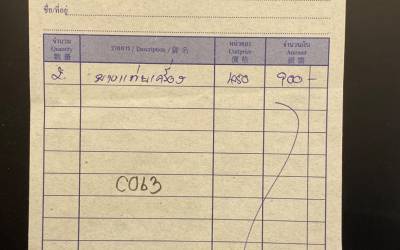 ชื่อ/ที่อยู่
จำนวน รายการ / Description / 貨名 หน่วยละ จำนวนเงิน
Quantity Unitprice Amount
數量 價格 銀碼
2 ยางแท่นเครื่อง 450 900-
C063